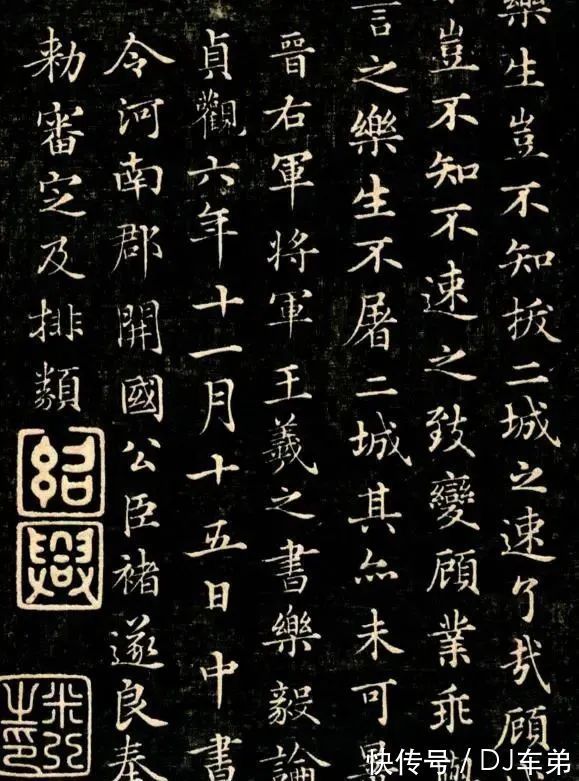 樂生豈不知拔二城之速了哉顧
豈不知不速之致變顧業乖
言之樂生不屠二城其亦未可
晉右軍將軍王羲之書樂毅論
貞觀六年十一月十五日中書
令河南郡開國公臣褚遂良奉
勑審定及排類
紹興
米芾之印
快传号/DJ车弟